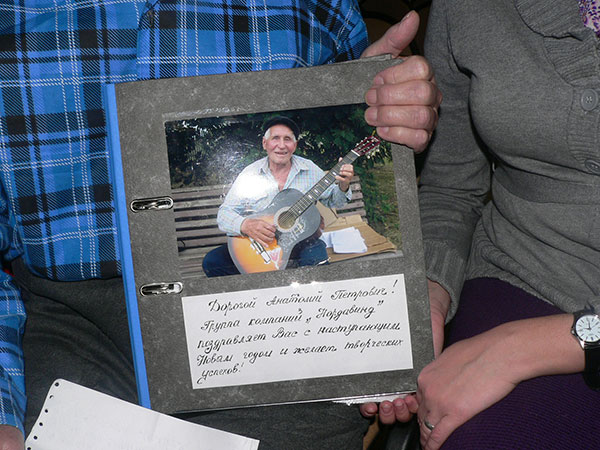 Дорогой Анатолий Петрович!
Группа компаний „Нордавинд"
поздравляет Вас с наступающим
Новым годом и желает творческих
успехов!